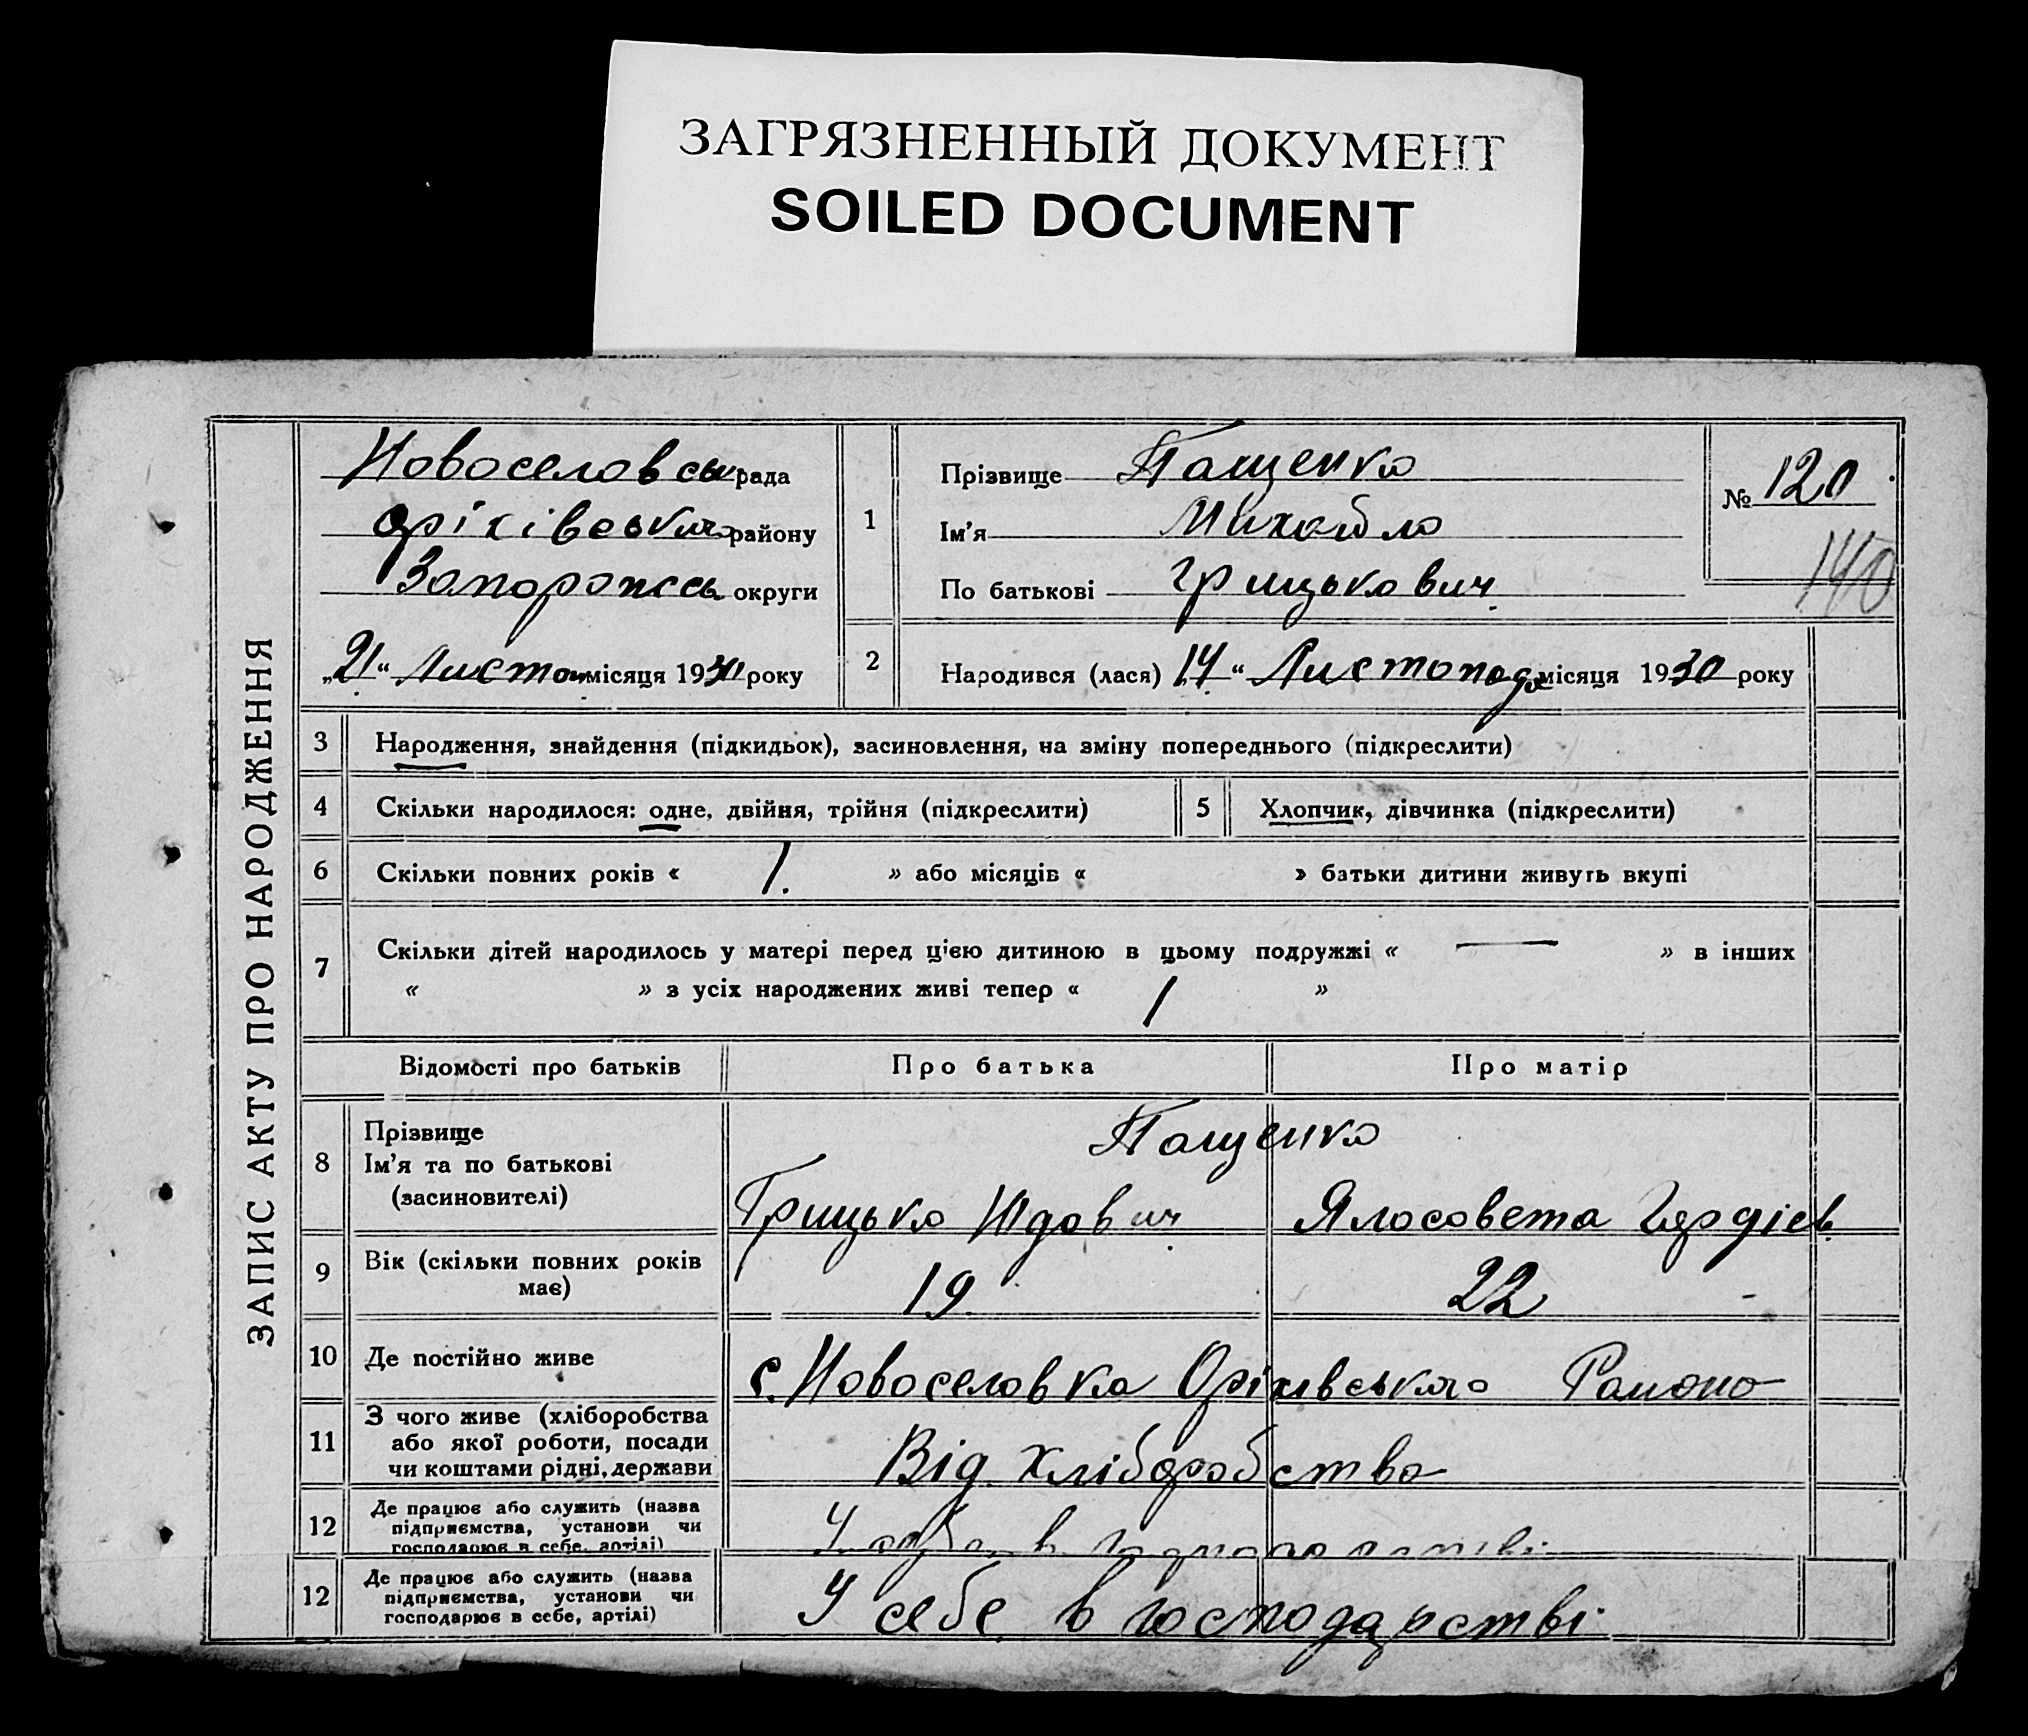 ЗАГРЯЗНЕННЫЙ ДОКУМЕНТ
SOILED DOCUMENT
ЗАПИС АКТУ ПРО НАРОДЖЕННЯ
Новоселовськ рада
Оріхівського району
Запорожсь округи
„21“ Листоп місяця 1930 року
1
Прізвище Пащенко
Ім'я Михайло
По батькові Грицькович
№ 120
140
2
Народився (лася) „14“ Листопада місяця 1930 року
3 Народження, знайдення (підкидьок), засиновлення, на зміну попереднього (підкреслити)
4 Скільки народилося: одне, двійня, трійня (підкреслити) 5 Хлопчик, дівчинка (підкреслити)
6 Скільки повних років « 1. » або місяців « » батьки дитини живуть вкупі
7 Скільки дітей народилось у матері перед цією дитиною в цьому подружжі « — » в інших
« » з усіх народжених живі тепер « 1 »
Відомості про батьків Про батька Про матір
8 Прізвище Пащенко
Ім'я та по батькові
(засиновителі) Грицько Ялосовета
9 Вік (скільки повних років
має) 19. 22
10 Де постійно живе с. Новоселовка Оріхівського Району
11 З чого живе (хліборобства
або якої роботи, посади
чи коштами рідні, держави Від хліборобства
12 Де працює або служить (назва
підприємства, установи чи
господарює в себе, артілі) У себе в господарстві
12 Де працює або служить (назва
підприємства, установи чи
господарює в себе, артілі) У себе в господарстві